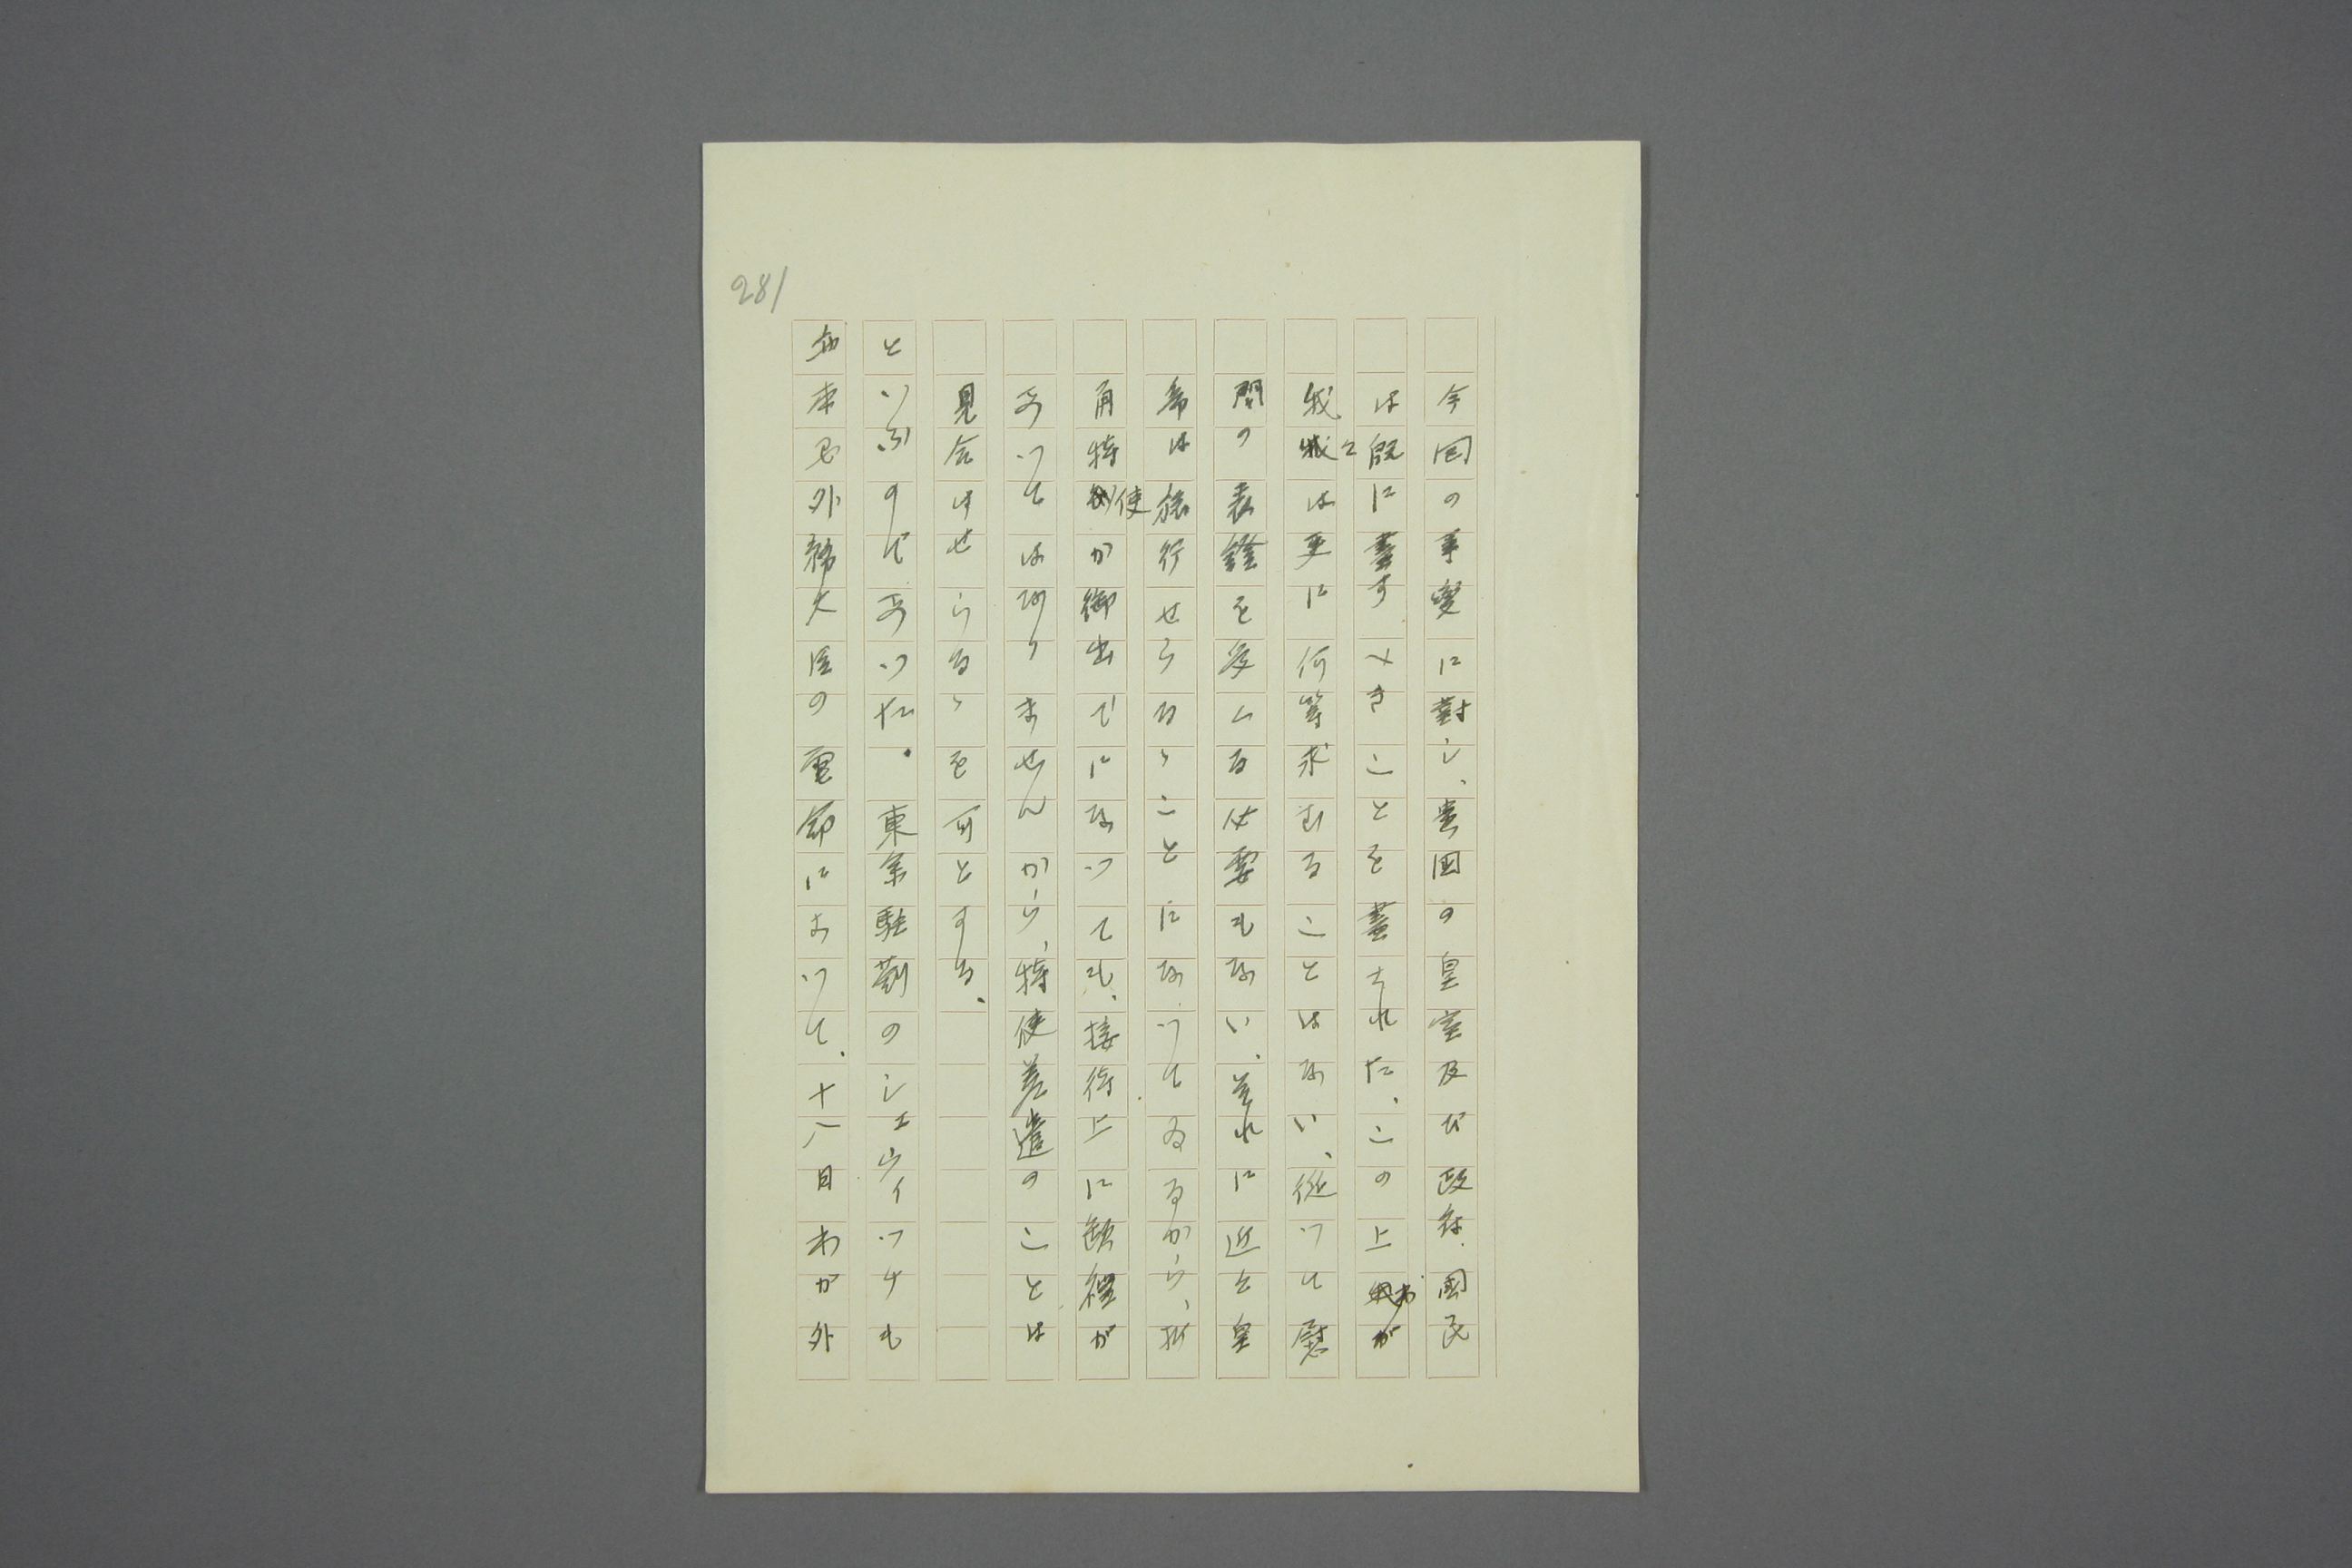 281
今回の事變に對し、貴国の皇室及び政府、國民
は既に盡すべきことを盡された、この上わが
我々は更に何等求むることはない、從つて慰
問の表證を受ける必要もない、それに近く皇
帝は旅行せらるゝことになつてゐるから、折
角特使が御出でになつても、接待上に缺禮が
あつてはなりませんから、特使差遣のことは
見合はせらるゝを可とする、
といふのであつた。東京駐劄のシエウイツチも
本邦外務大臣の電命によつて、十八日わが外